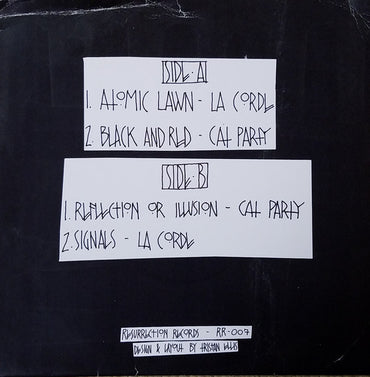 SIDE·A
1. ATOMIC LAWN - LA CORDE
2. BLACK AND RED - CAT PARTY
SIDE·B
1. REFLECTION OR ILLUSION - CAT PARTY
2. SIGNALS - LA CORDE
RESURRECTION RECORDS - RR-007
DESIGN & LAYOUT BY TRISTAN